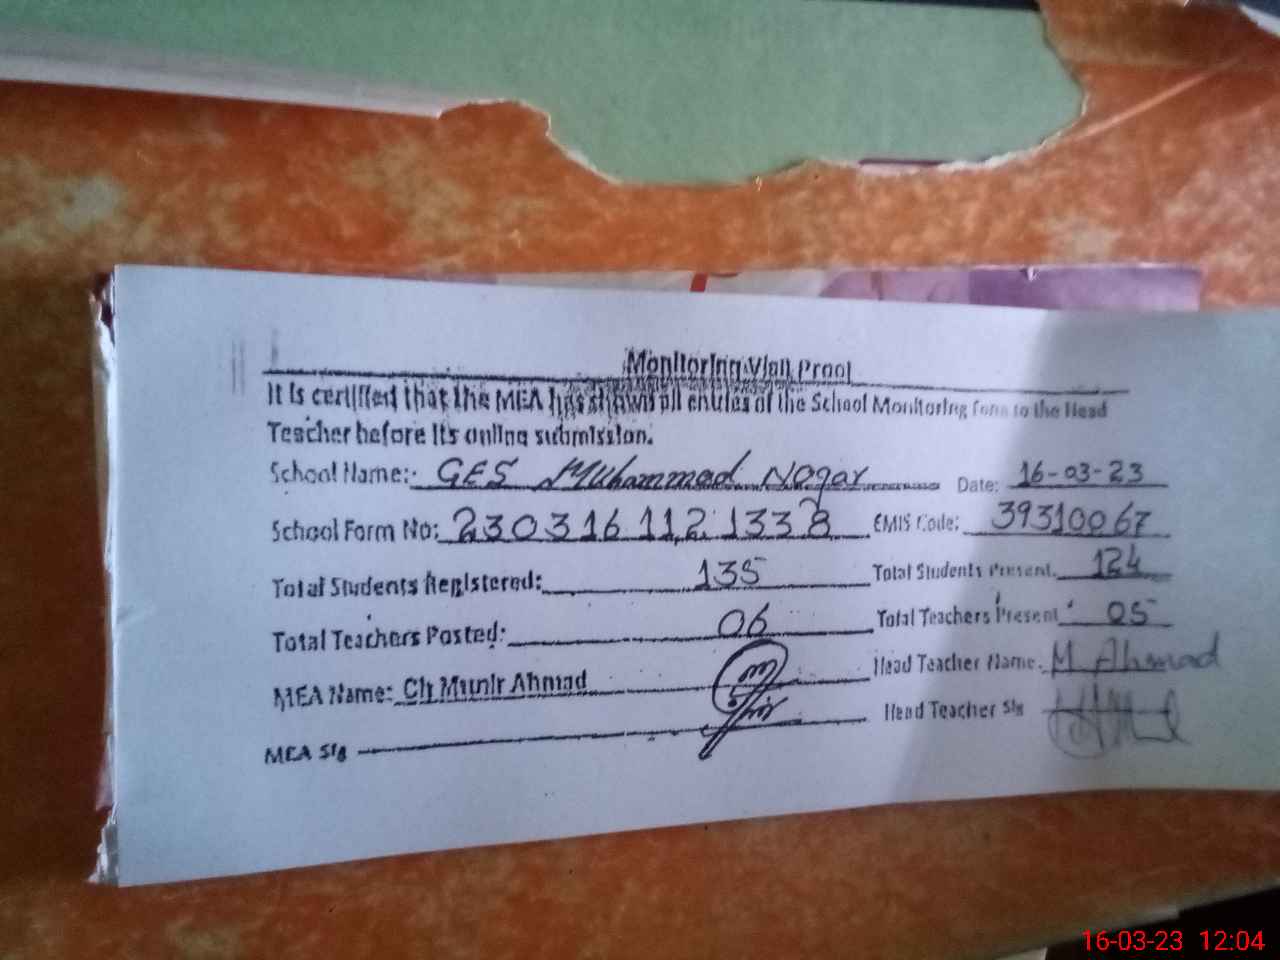 Monitoring Visit Proof
It is certified that the MEA has shown all entries of the School Monitoring form to the Head
Teacher before its online submission.
School Name: GES Muhammad Nagar Date: 16-03-23
School Form No: 230316 112 1338 EMIS Code: 39310067
Total Students Registered: 135 Total Students Present. 124
Total Teachers Posted: 06 Total Teachers Present 05
MEA Name: Ch Munir Ahmad Head Teacher Name: M Ahmad
MEA Sig Head Teacher Sig
16-03-23 12:04